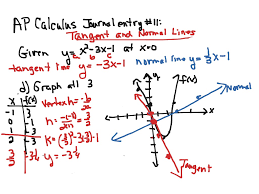 AP Calculus Journal entry #11:
Tangent and Normal Lines
Given y = x²-3x-1 at x=0
a b c
tangent line y = -3x-1 normal line y = 1/3 x - 1
d) Graph all 3
x f(x) Vertex h = -b/2a
-1 3
0 -1
1 -3
2 -3
y = -3 1/4
f(x)
Normal
x
Tangent